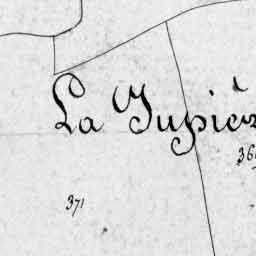 La Jupiè
371